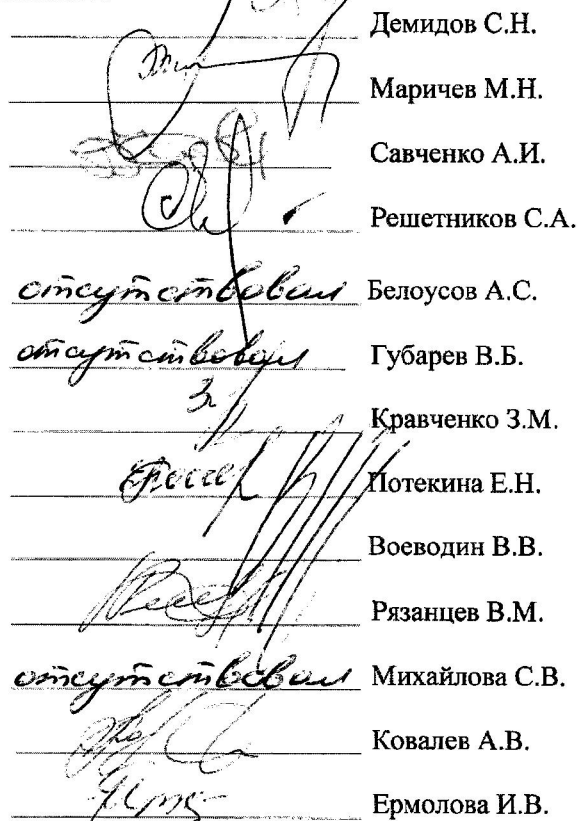 Демидов С.Н.
Маричев М.Н.
Савченко А.И.
Решетников С.А.
отсутствовал Белоусов А.С.
отсутствовал Губарев В.Б.
Кравченко З.М.
Потекина Е.Н.
Воеводин В.В.
Рязанцев В.М.
отсутствовал Михайлова С.В.
Ковалев А.В.
Ермолова И.В.